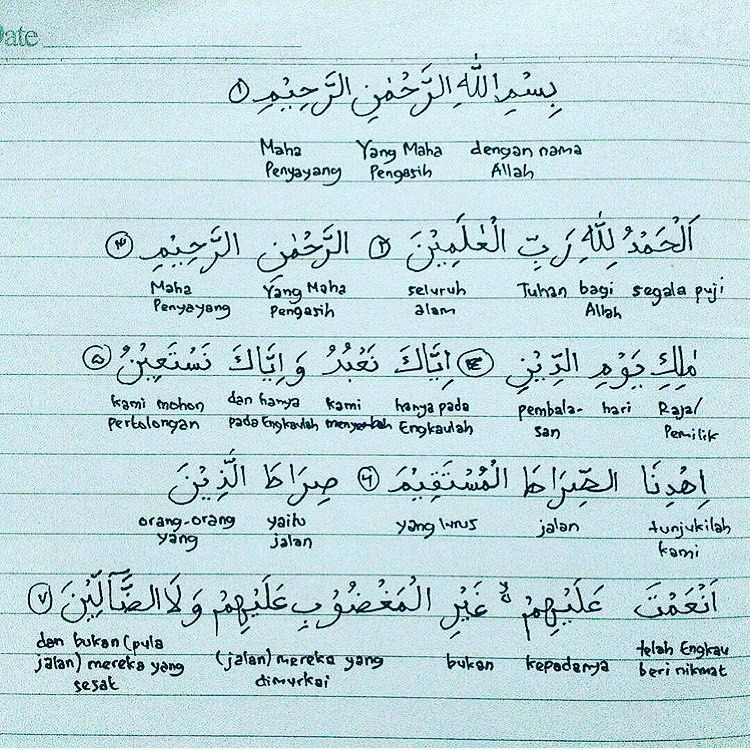 Date
بِسْمِ اللّٰهِ الرَّحْمٰنِ الرَّحِيْمِ ١
Maha Yang Maha dengan nama
Penyayang Pengasih Allah
اَلْحَمْدُ لِلّٰهِ رَبِّ الْعٰلَمِيْنَ ٢ الرَّحْمٰنِ الرَّحِيْمِ ٣
Maha Yang Maha seluruh Tuhan bagi segala puji
Penyayang Pengasih alam Allah
مٰلِكِ يَوْمِ الدِّيْنِ ٤ اِيَّاكَ نَعْبُدُ وَاِيَّاكَ نَسْتَعِيْنُ ٥
kami mohon dan hanya kami hanya pada pembala- hari Raja/
pertolongan pada Engkaulah menyembah Engkaulah san Pemilik
اِهْدِنَا الصِّرَاطَ الْمُسْتَقِيْمَ ٦ صِرَاطَ الَّذِيْنَ
orang-orang yaitu yang lurus jalan tunjukilah
yang jalan kami
اَنْعَمْتَ عَلَيْهِمْ ۙ غَيْرِ الْمَغْضُوْبِ عَلَيْهِمْ وَلَا الضَّاۤلِّيْنَ ٧
dan bukan (pula (jalan) mereka yang bukan kepadanya telah Engkau
jalan) mereka yang dimurkai beri nikmat
sesat